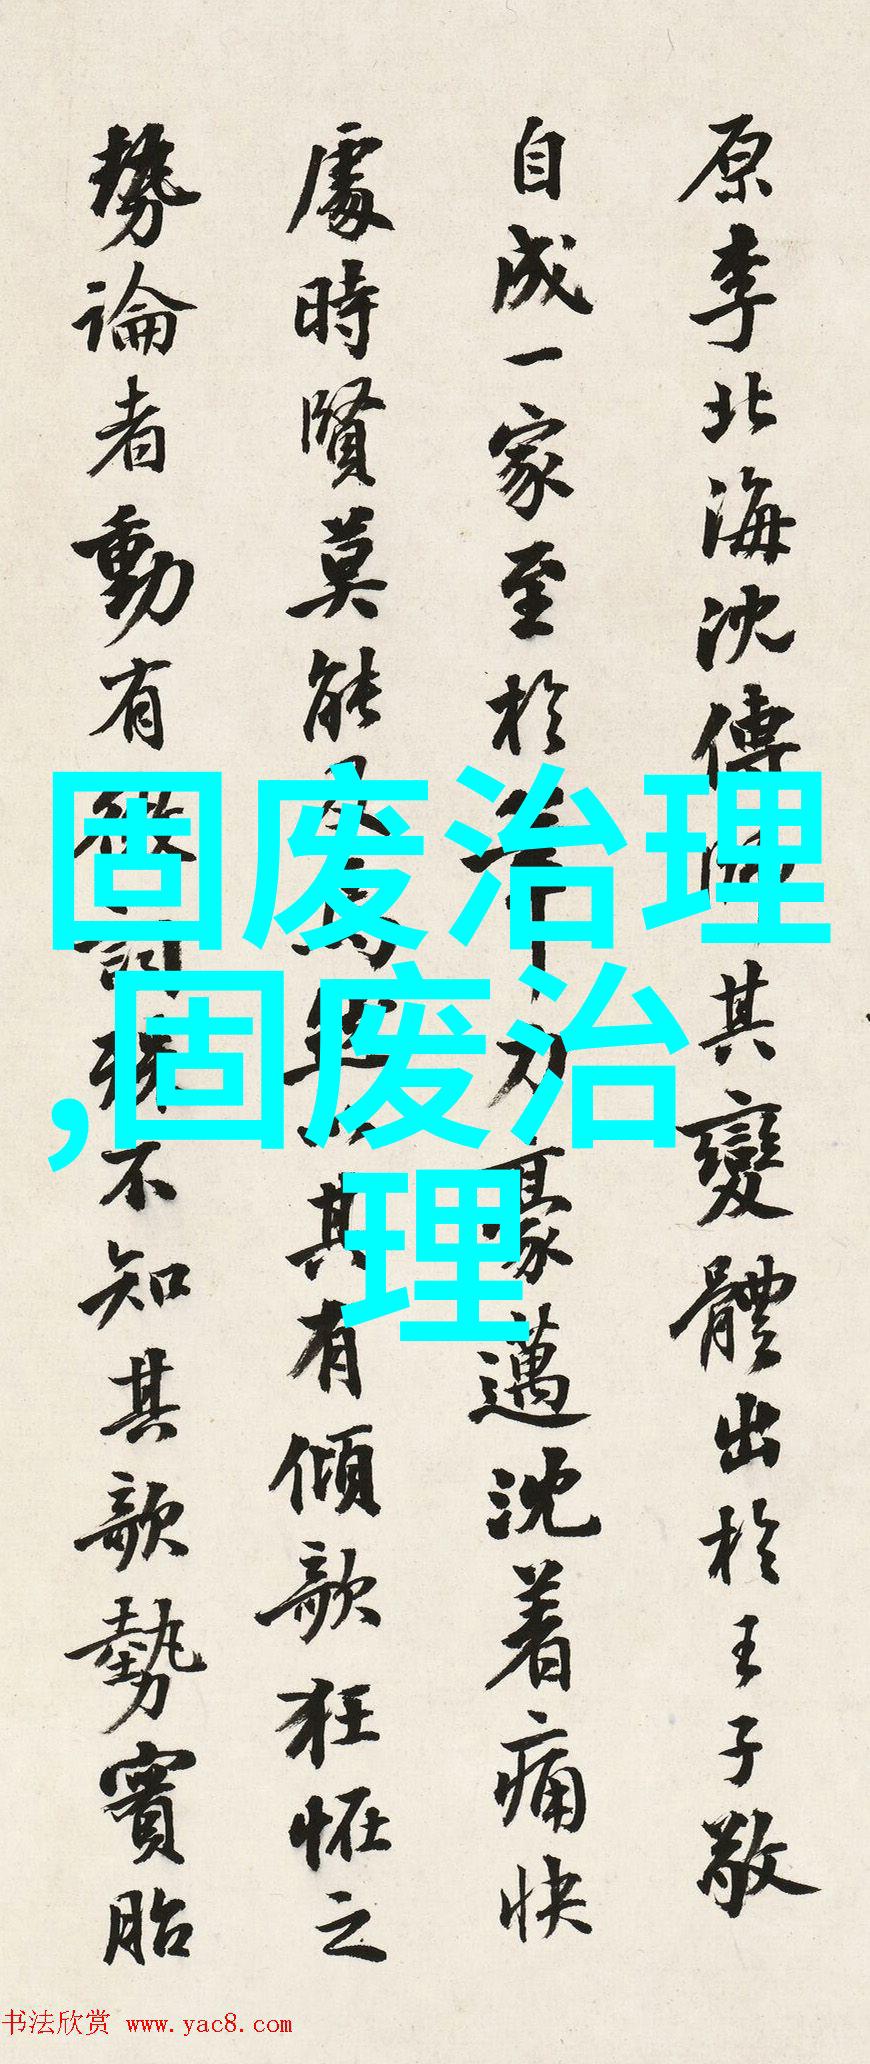 原李北海沈傳師其變體出於王子敬
自成一家至於
豪邁沈着痛快
處時賢莫能及
其有傾欹狂怪之
勢論者動有微詞殊不知其欹勢實胎
固废治理
,固废治
理
书法欣赏 www.yac8.com